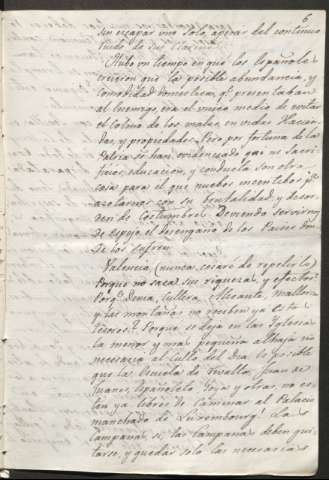 6
sin escapar uno solo, apesar del continuo
ruido de sus
Hubo un tiempo en que los Españoles
creyeron que la posible abundancia, y
comodidad domestica, qe presentaban
al Enemigo era el unico medio de evitar
el colmo de los males, en vidas Hacien-
das, y propiedades. Pero por fortuna de la
Patria se han evidenciado qe ni sacri-
ficios, educacion, y conducta son otra
cosa para el que nuebos incentibos pa
asolarnos con su brutalidad, y desor-
den de costumbres. Deviendo servirnos
de espejo el desengaño de los Paises don-
de los sufren
Valencia, (nunca cesaré de repetirlo)
Porque no saca sus riquezas y efectos?
Porqe Denia, Cullera, Alicante, Mallorca
y las montañas no reciben ya estos
tesoros? Porque se deja en las Iglesias
la menor y mas pequeña alhaja no
necesaria al culto del Dia. Es posible
que la Escuela de Rivalta, Juan de
Juanes Españoleto Goya y otras, no es-
tan ya libres de caminar al Palacio
manchado de Luxembourg! Las
Campanas, si, las Campanas deben qui-
tarse, y quedar solo las necesarias